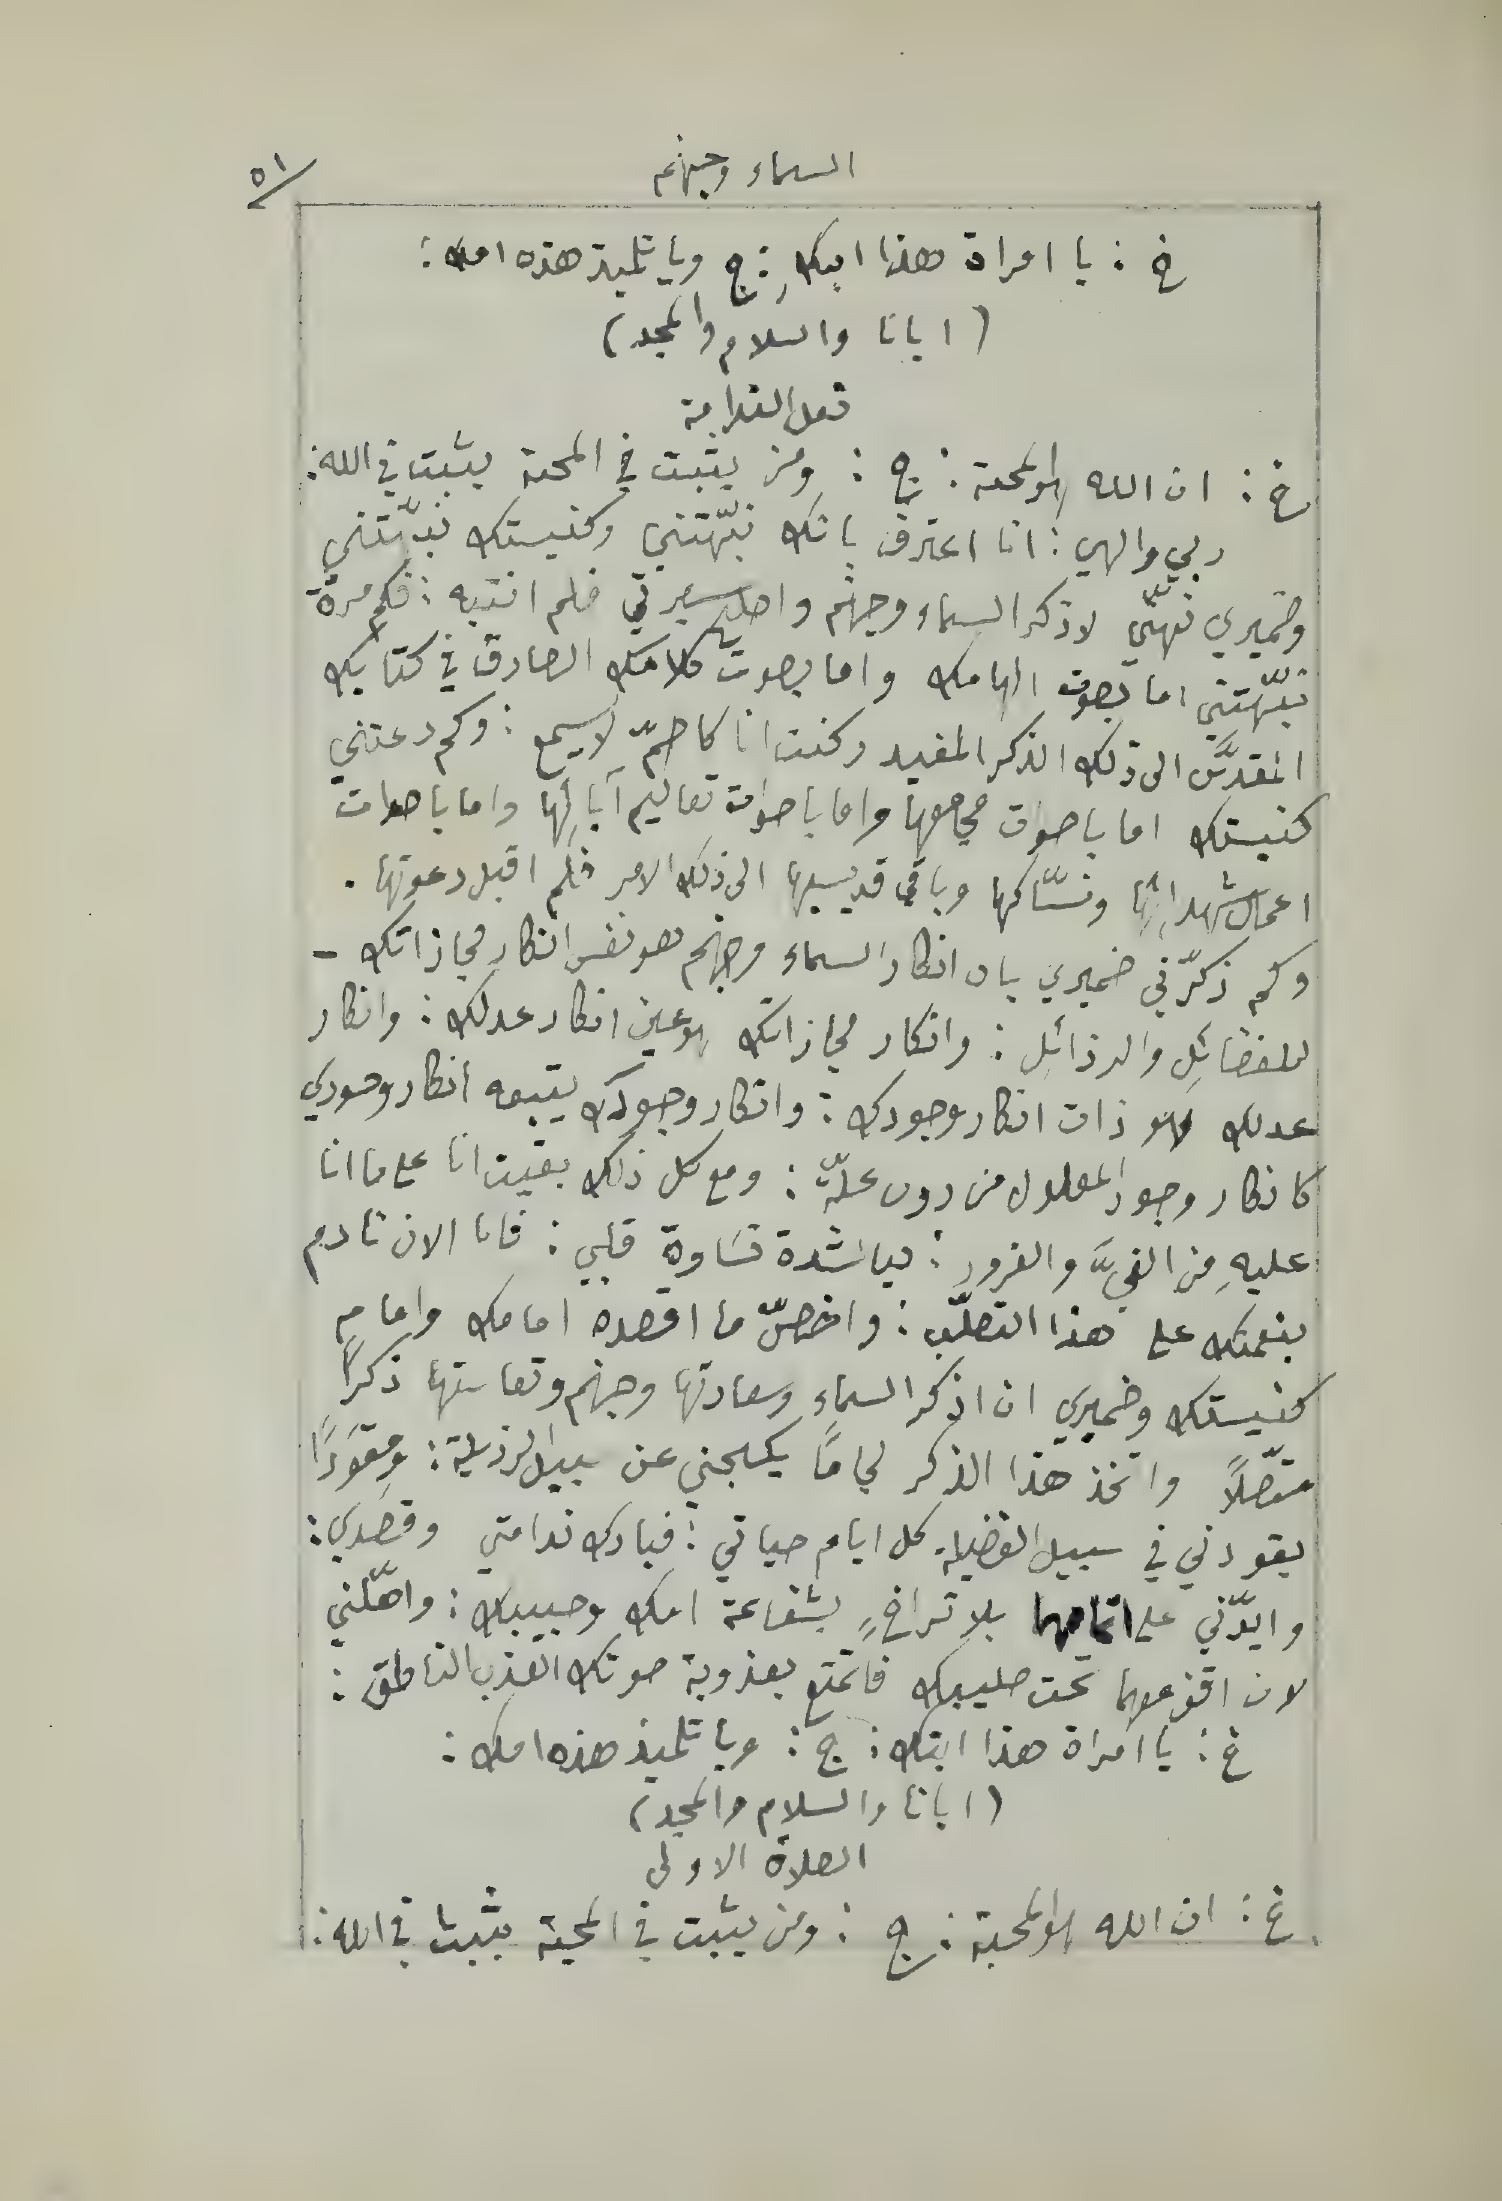 السماء وجهنم
٥١
خ : يا امراة هذا ابنكِ : ج ويا تلميذ هذه امك :
( ابانا والسلام والمجد )
فعل الندامة
خ : ان الله هو المحبة : ج : ومن يثبت في المحبة يثبت في الله :
ربي والهي : انا اعترف بانك نبّهتني وكنيستك نبّهتني
وضميري نبّهني لاذكر السماء وجهنم واصلح سيرتي فلم انتبه : فكم مرة
نبّهتني اما بصوت الهامك واما بصوت كلامك الصادق في كتابك
المقدَّس الى ذلك الذكر المفيد وكنت انا كاصمّ لا يسمع : وكم دعتني
كنيستك اما باصوات مجامعها واما باصوات تعاليم آبائِها واما باصوات
اعمال شهدائِها ونسّاكها وباقي قديسيها الى ذلك الامر فلم اقبل دعوتها .
وكم ذكرّني ضميري بان انكار السماء وجهنم هو نفس انكار مجازاتك –
للفضائِل والرذائِل : وانكار مجازاتك هو عين انكار عدلك : وانكار
عدلك هو ذات انكار وجودك : وانكار وجودك يتبعه انكار وجودي
كانكار وجود المعلول من دون علّة : ومع كل ذلك بقيت انا على ما انا
عليهِ من الغيّ والغرور : فيا لشدة قسَاوة قلبي : فانا الان نادم
بنعمتك على هذا التصلّب : واخصّ ما اقصده امامك وامام
كنيستك وضميري ان اذكر السماء وسعادتها وجهنم وتعاستها ذكرًا
متصّلاً واتخذ هذا الذكر لجامًا يكبحني عن سبيل الرذيلة : ومِقوَدًا
يقودني في سبيل الفضيلة كل ايام حياتي : فبارك ندامتي وقصدي :
وايدّني على اتمامهما بلا تراخٍ بشفاعة امك وحبيبك : واهّلني
لان اقف معهما تحت صليبك فاتمتع بعذوبة صوتك العذب الناطق :
خ : يا امراة هذا ابنك : ج : ويا تلميذ هذه امك :
( ابانا والسلام والمجد )
الصلاة الاولى
خ : ان الله هو المحبة : ج : ومن يثبت في المحبة يثبت في الله :